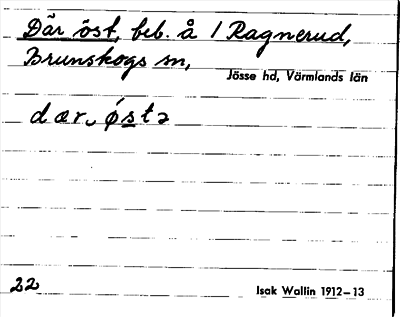 Där öst, beb. å 1 Ragnerud,
Brunskogs sn,
Jösse hd, Värmlands län
dær, østə
22
Isak Wallin 1912–13